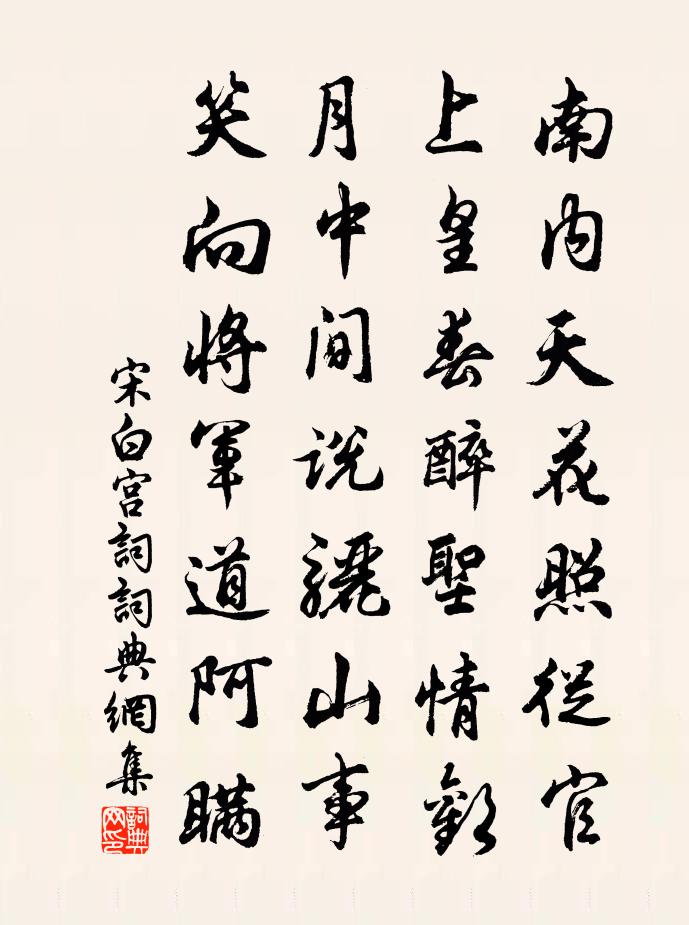 南内天花照從官
上皇春醉聖情歡
月中間說驪山事
笑向將軍道阿瞞
宋白宮詞詞典網集
詞典网印